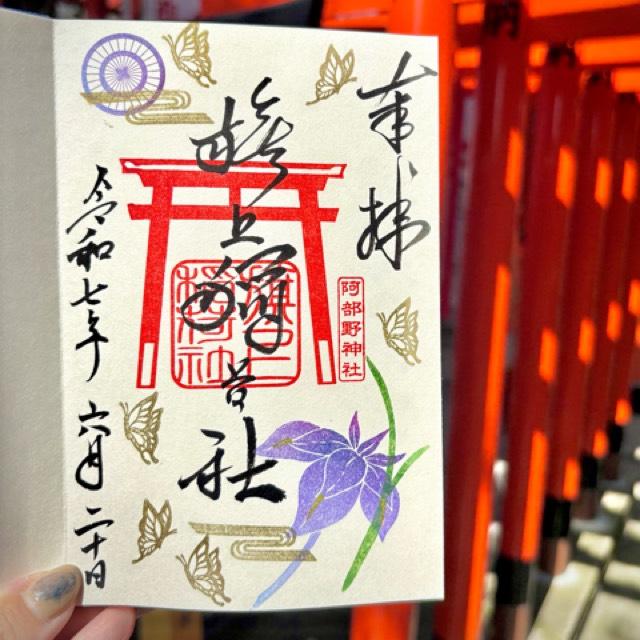 奉拝
阿部野神社
旗上稲荷社
令和七年 六月 二十日